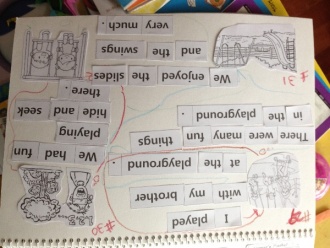 I played
with my brother
at the playground .
There were many fun things
in the playground .
#30
1 2 3
We had fun
playing
hide and seek
there .
#31
We enjoyed the slides
and the swings
very much .